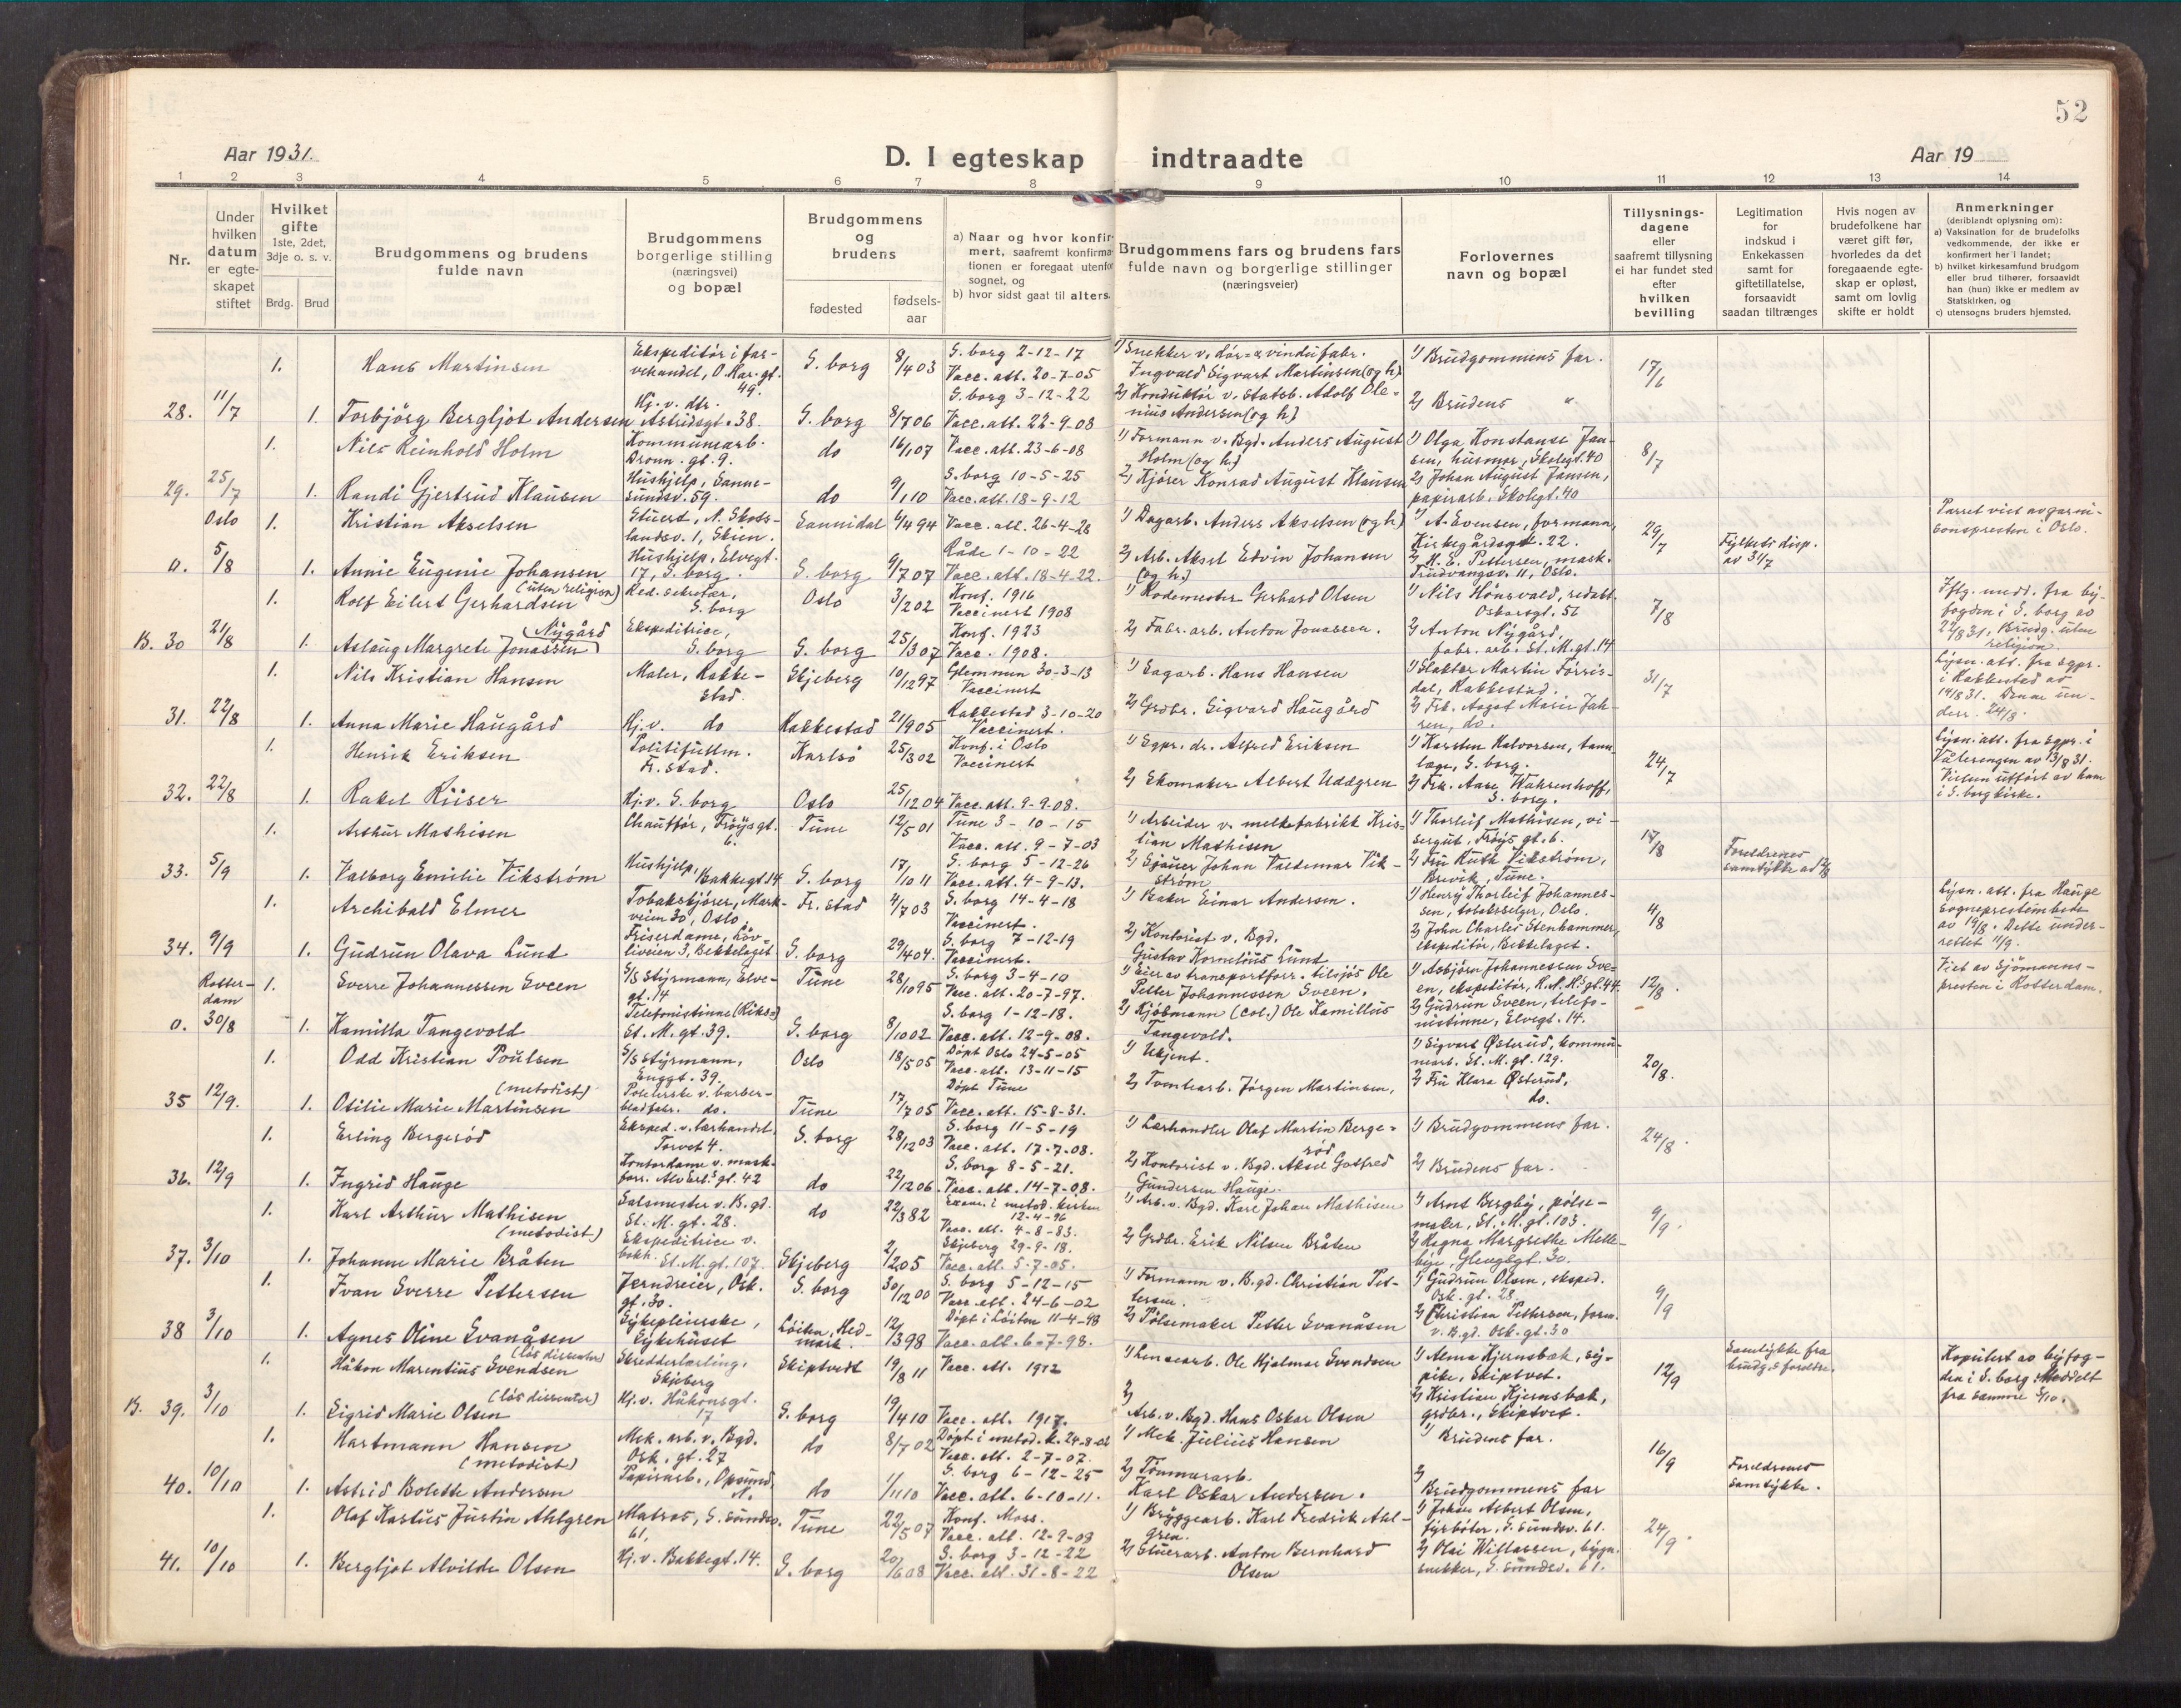 52
Aar 1931.
D. I egteskap indtraadte
Aar 19
1 2 3 4 5 6 7 8 9 10 11 12 13 14
Nr.
Under hvilken datum er egteskapet stiftet
Hvilket gifte
1ste, 2det, 3dje o. s. v.
Brdg. Brud
Brudgommens og brudens fulde navn
Brudgommens borgerlige stilling (næringsvei) og bopæl
Brudgommens og brudens
fødested
fødsels-aar
a) Naar og hvor konfirmert, saafremt konfirmationen er foregaat utenfor sognet, og
b) hvor sidst gaat til alters.
Brudgommens fars og brudens fars fulde navn og borgerlige stillinger (næringsveier)
Forlovernes navn og bopæl
Tillysnings-dagene eller saafremt tillysning ei har fundet sted efter hvilken bevilling
Legitimation for indskud i Enkekassen samt for giftetillatelse, forsaavidt saadan tiltrænges
Hvis nogen av brudefolkene har været gift før, hvorledes da det foregaaende egteskap er opløst, samt om lovlig skifte er holdt
Anmerkninger
(deriblandt oplysning om):
a) Vaksination for de brudefolks vedkommende, der ikke er konfirmert her i landet;
b) hvilket kirkesamfund brudgom eller brud tilhører, forsaavidt han (hun) ikke er medlem av Statskirken, og
c) utensogns bruders hjemsted.
1. Hans Martinsen Ekspeditör i farvehandel, O. Har. gt. 49. S. borg 8/4 03 S. borg 2-12-17 Vacc. att. 20-7-05 1) Snekker v. dör- & vindufabr. Ingvald Sigvart Martinsen (og h) 1) Brudgommens far. 17/6
28. 11/7 1. Torbjörg Bergljot Andersen Hj. v. dtr. Astridsgt. 38. S. borg 8/7 06 S. borg 3-12-22 Vacc. att. 22-9-08 2) Konduktör v. Statsb. Adolf Olenius Andersen (og h) 2) Brudens "
1. Nils Reinhold Holm Kommunearb. Dronn. gt. 9. do 16/1 07 Vacc. att. 23-6-08 1) Formann v. Bgd. Anders August Holm (og h.) 1) Olga Konstanse Jansen, husmor, Skolegt. 40 8/7
29. 25/7 1. Randi Gjertrud Klausen Hushjelp, Sannesundsv. 59. do 9/1 10 S. borg 10-5-25 Vacc. att. 18-9-12 2) Kjörer Konrad August Klausen 2) Johan August Jansen, papirarb. Skolegt. 40
Oslo 1. Kristian Akselsen Stuert, N. Skotslandsv. 1, Skien. Sannidal 6/4 94 Vacc. att. 26-4-28 1) Dagarb. Anders Akselsen (og h) 1) A. Evensen, formann, Kirkegårdsgt. 22. 29/7 Fylkets disp. av 31/7 Parret viet av garnisonspresten i Oslo.
a. 5/8 1. Annie Eugenie Johansen Hushjelp, Elvegt. 17, S. borg. S. borg 9/7 07 Råde 1-10-22 Vacc. att. 18-4-22. 2) Arb. Aksel Edvin Johansen (og h.) 2) M. E. Pettersen, mask. Trudvangsv. 11, Oslo.
1. (uten religion) Rolf Eilert Gerhardsen Red. sekretær, S. borg Oslo 3/2 02 Konf. 1916 Vaccinert 1908 1) Rodemester Gerhard Olsen 1) Nils Hönsvald, redakt. Oskarsgt. 56 7/8 Iflg. medd. fra byfogden i S. borg av 22/8 31, Brudg. uten religion.
B. 30 21/8 1. Aslaug Margrete Jonassen (Nygård) Ekspeditrice, S. borg S. borg 25/3 07 Konf. 1923 Vacc. 1908. 2) Fabr. arb. Anton Jonassen. 2) Anton Nygård, fabr. arb. St. M. gt. 14
1. Nils Kristian Hansen Maler, Rakkestad. Skjeberg 10/12 97 Glemmen 30-3-13 Vaccinert 1) Sagarb. Hans Hansen 1) Slakter MartinFørrisdal, Rakkestad. 31/7 Lysn. att. fra sgpr. i Rakkestad av 14/8 31. Denne underr. 24/8.
31. 22/8 1. Anna Marie Haugård Hj. v. do Rakkestad 21/9 05 Rakkestad 3-10-20 Vaccinert. 2) Grdbr. Sigvard Haugård 2) Frk. Aagot Marie Jahren, do.
1. Henrik Eriksen Politifullm. Fr. stad. Karlsö 25/3 02 Konf. i Oslo Vaccinert 1) Sgpr. dr. Alfred Eriksen 1) Karsten Halvorsen, tannlæge, S. borg. 24/7 Lysn. att. fra sgpr. i Vålerengen av 13/8 31. Vielsen utfört av ham i S. borg kirke.
32. 22/8 1. Rakel Riiser Hj. v. S. borg Oslo 25/12 04 Vacc. att. 9-9-08. 2) Skomaker Albert Uddgren 2) Frk. Aase Wahrenhoff, S. borg.
1. Arthur Mathisen Chaufför, Fröys gt. 6. Tune 12/5 01 Tune 3-10-15 Vacc. att. 9-7-03 1) Arbeider v. melkefabrikk Kristian Mathisen 1) Thorleif Mathisen, visergut, Fröys gt. 6. 17/8
33. 5/9 1. Valborg Emilie Vikstrøm Hushjelp, Bakkegt. 14 S. borg 17/10 11 S. borg 5-12-26 Vacc. att. 4-9-13. 2) Sjauer Johan Valdemar Vikström 2) Fru Ruth Vikström, Brevik, Tune. Foreldrenes samtykke
1. Archibald Elmer Tobakskjörer, Markveien 30, Oslo. Fr. stad 4/7 03 S. borg 14-4-18 Vaccinert. 1) Baker Einar Andersen. 1) Henry Thorleif Johannessen, tobakselger, Oslo. 4/8 Lysn. att. fra Hauge sogneprestembede av 19/8. Dette underrettet 11/9.
34. 9/9 1. Gudrun Olava Lund Friserdame, Lövliveien 3, Bekkelaget S. borg 29/4 04. S. borg 7-12-19 Vaccinert. 2) Kontorist v. Bgd. Gustav Kornelius Lund 2) John Charles Stenhammer, ekspeditör, Bekkelaget.
Rotterdam 1. Sverre Johannessen Sveen S/S Styrmann, Elvegt. 14 Tune 28/10 95 S. borg 3-4-10 Vacc. att. 20-7-97. 1) Eier av transportforr. tilsjös Ole Petter Johannessen Sveen. 1) Asbjörn Johannessen Sveen, ekspeditör, K. N. Ks gt. 44. 12/8. Viet av Sjömannspresten i Rotterdam.
a. 30/8 1. Kamilla Tangevold Telefonistinne (Riks-) St. M. gt. 39. S. borg 8/10 02 S. borg 1-12-18. Vacc. att. 12-9-08. 2) Kjöbmann (col.) Ole Kamillus Tangevold. 2) Gudrun Sveen, telefonistinne, Elvegt. 14.
1. Odd Kristian Poulsen S/S Styrmann, Enggt. 39. Oslo 18/5 05 Döpt Oslo 24-5-05 Vacc. att. 13-11-15 1) Ukjent. 1) Sigvart Østerud, kommunearb. St. M. gt. 129. 20/8.
35 12/9. 1. (metodist) Otilie Marie Martinsen Polererske v. barberbladfabr. do. Tune 17/7 05 Döpt Tune Vacc. att. 15-8-31. 2) Tomtearb. Jörgen Martinsen, 2) Fru Klara Østerud, do.
1. Erling Bergeröd Eksped. v. lærhandel, Torvet 4. S. borg 28/12 03 S. borg 11-5-19 Vacc. att. 17-7-08. 1) Lærhandler Olaf Martin Bergeröd 1) Brudgommens far. 24/8.
36. 12/9 1. Ingrid Hauge Kontordame v. maskforr. Alv. Erl.s gt. 42 do 22/12 06. S. borg 8-5-21. Vacc. att. 14-7-08. 2) Kontorist v. Bgd. Aksel Gotfred Gundersen Hauge. 2) Brudens far.
1. Karl Arthur Mathisen (metodist) Salsmester v. B. gd. St. M. gt. 28. do 22/3 82 Exam. i metod. kirken 12-4-96 Vacc. att. 4-8-83. 1) Arb. v. Bgd. Karl Johan Mathisen 1) Arnt Bergby, pølsemaker, St. M. gt. 103. 9/9.
37. 3/10 1. Johanne Marie Bråten Ekspeditrice v. bokh. St. M. gt. 107. Skjeberg 2/12 05 Skjeberg 29-9-18. Vacc. att. 5-7-05. 2) Grdbr. Erik Nilsen Bråten 2) Ragna Margrethe Mellebye, Glengsgt. 30.
1. Ivan Sverre Pettersen Jerndreier, Osk. gt. 30. S. borg 30/12 00 S. borg 5-12-15 Vacc. att. 24-6-02 1) Formann v. B. gd. Christian Pettersen. 1) Gudrun Olsen, eksped. Osk. gt. 28. 9/9
38 3/10 1. Agnes Oline Svanåsen Sykepleierske, Sykehuset Löiten, Hedmark. 12/3 98 Döpt i Löiten 11-4-98 Vacc. att. 6-7-98. 2) Pølsemaker Petter Svanåsen 2) Christian Pettersen, form. v. B. gd. Osk. gt. 30
1. (lös dissenter) Håkon Marentius Svendsen Skredderlærling, Skjeberg Skiptvedt 19/8 11 Vacc. att. 1912 1) Lensearb. Ole Hjalmar Svendsen 1) Alma Hjernsbæk, sypike, Skiptvet. 12/9 Samtykke fra brudg.s foreldre. Kopulert av byfogden i S. borg. Meddelt fra samme 5/10.
B. 39. 3/10 1. (lös dissenter) Sigrid Marie Olsen Hj. v. Håkonsgt. 17 S. borg 19/4 10 Vacc. att. 1917. 2) Arb. v. Bgd. Hans Oskar Olsen 2) Kristian Hjernsbæk, grdbr., Skiptvet.
1. Hartmann Hansen (metodist) Mek. arb. v. Bgd. Osk. gt. 27 do 8/7 02 Döpt i metod. k. 24-8-02 Vacc. att. 2-7-07. 1) Mek. Julius Hansen 1) Brudens far. 16/9
40. 10/10 1. Astrid Bolette Andersen Papirarb., Opsund, N. do 1/1 10 S. borg 6-12-25 Vacc. att. 6-10-11. 2) Tömmerarb. Karl Oskar Andersen. 2) Brudgommens far Foreldrenes samtykke.
1. Olaf Kastus Justin Ahlgren Matros, S. sundsv. 61. Tune 22/5 07 Konf. Moss. Vacc. att. 12-9-08 1) Bryggearb. Karl Fredrik Ahlgren. 1) Johan Albert Olsen, fyrböter, S. sundsv. 61. 24/9.
41. 10/10 1. Bergljot Alvilde Olsen Hj. v. Bakkegt. 14. S. borg 20/6 08 S. borg 3-12-22 Vacc. att. 31-8-22 2) Stuerarb. Anton Bernhard Olsen 2) Olai Willassen, bygn. snekker, S. sundsv. 61.